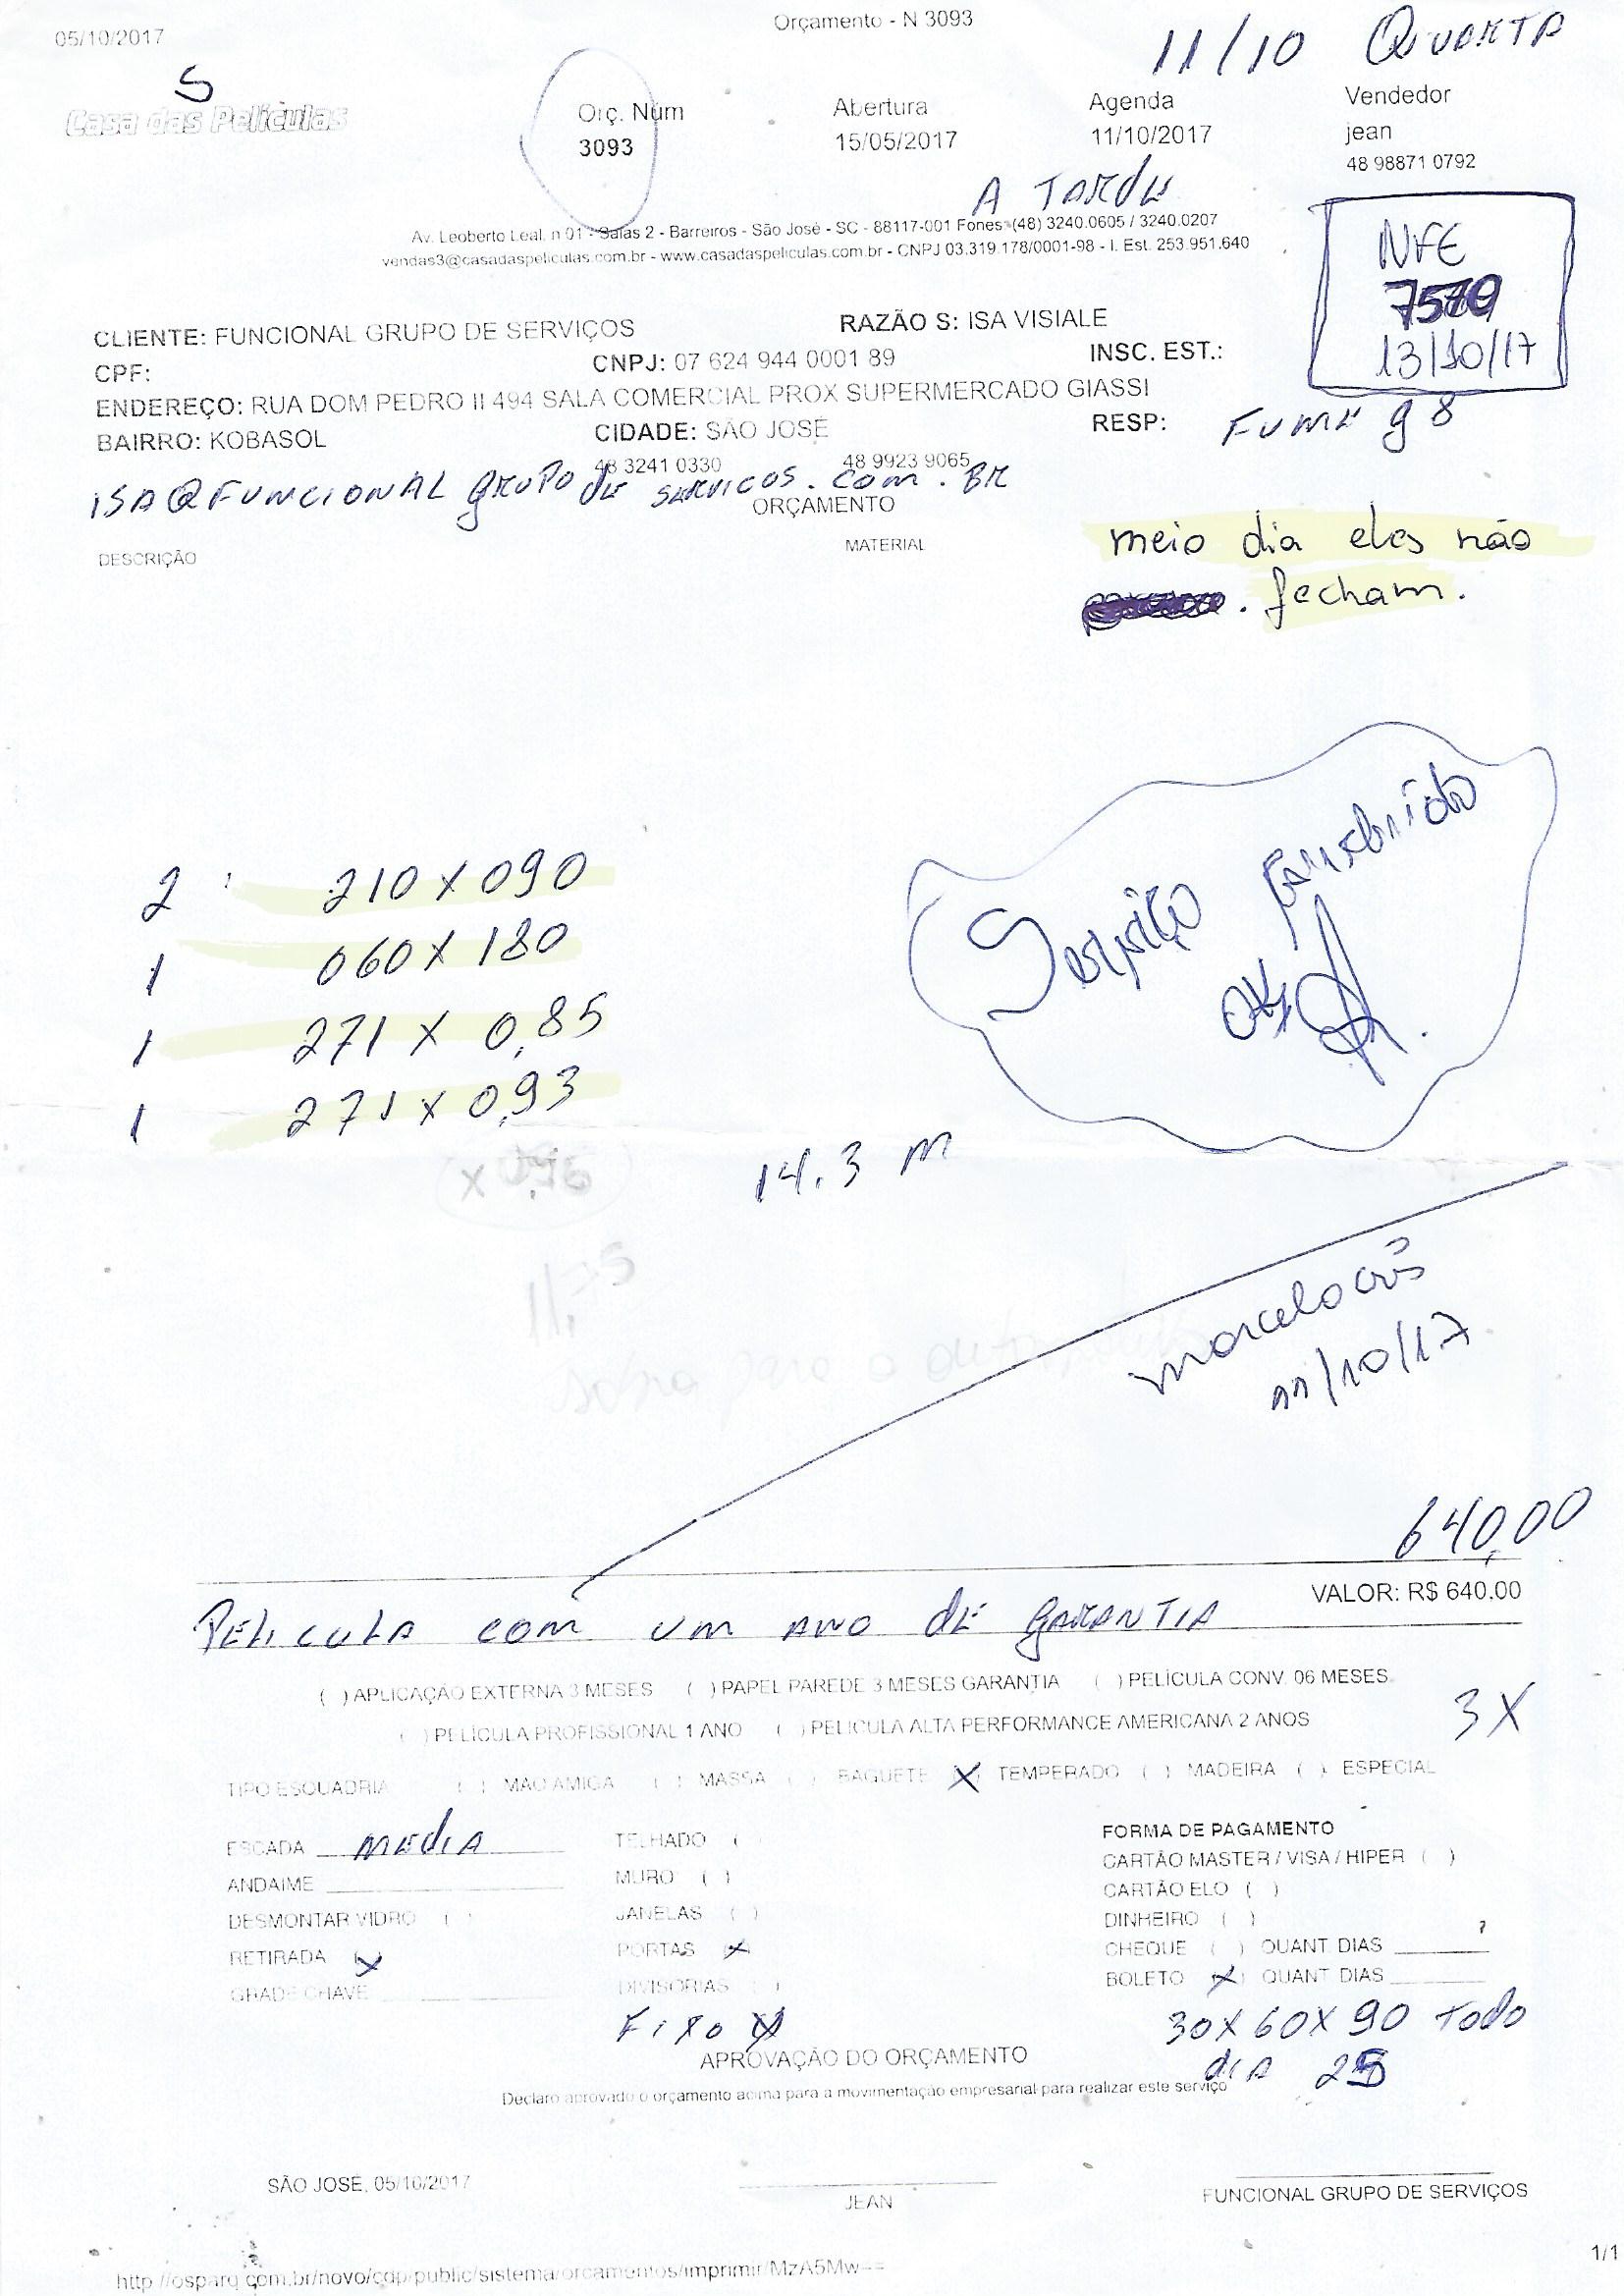 05/10/2017 Orçamento - N 3093
11/10 QUARTA
5
Casa das Películas
Orç. Num Abertura Agenda Vendedor
3093 15/05/2017 11/10/2017 jean
48 98871 0792
A TARDE
Av. Leoberto Leal, n 01 - Salas 2 - Barreiros - São José - SC - 88117-001 Fones: (48) 3240.0605 / 3240.0207
vendas3@casadaspeliculas.com.br - www.casadaspeliculas.com.br - CNPJ 03.319.178/0001-98 - I. Est. 253.951.640
NFE
13/10/17
CLIENTE: FUNCIONAL GRUPO DE SERVIÇOS RAZÃO S: ISA VISIALE
CPF: CNPJ: 07 624 944 0001 89 INSC. EST.:
ENDEREÇO: RUA DOM PEDRO II 494 SALA COMERCIAL PROX SUPERMERCADO GIASSI
BAIRRO: KOBASOL CIDADE: SÃO JOSÉ RESP: FUME g8
48 3241 0330 48 9923 9065
ISA@FUNCIONAL GRUPO DE SERVICOS.COM.BR
ORÇAMENTO
DESCRIÇÃO MATERIAL
meio dia eles não
fecham.
2 210 X 090
1 060 X 180
1 271 X 0,85
1 271 X 0,93
x 0,96
Serviço
OK
14.3 m
11,75
sobra para o
marcelo
11/10/17
640,00
VALOR: R$ 640.00
PELICULA COM UM ANO DE GARANTIA
( ) APLICAÇÃO EXTERNA 3 MESES ( ) PAPEL PAREDE 3 MESES GARANTIA ( ) PELÍCULA CONV. 06 MESES
( ) PELÍCULA PROFISSIONAL 1 ANO ( ) PELICULA ALTA PERFORMANCE AMERICANA 2 ANOS
3X
TIPO ESQUADRIA ( ) MAO AMIGA ( ) MASSA ( ) BAGUETE (X) TEMPERADO ( ) MADEIRA ( ) ESPECIAL
ESCADA MEDIA TELHADO ( ) FORMA DE PAGAMENTO
ANDAIME MURO ( ) CARTÃO MASTER / VISA / HIPER ( )
DESMONTAR VIDRO ( ) JANELAS ( ) CARTÃO ELO ( )
DINHEIRO ( )
RETIRADA (X) PORTAS (X) CHEQUE ( ) QUANT. DIAS
GRADE CHAVE DIVISORIAS ( ) BOLETO (X) QUANT. DIAS
FIXO (X) 30X 60X 90 TODO
DIA 25
APROVAÇÃO DO ORÇAMENTO
Declaro aprovado o orçamento acima para a movimentação empresarial para realizar este serviço
SÃO JOSÉ, 05/10/2017
JEAN FUNCIONAL GRUPO DE SERVIÇOS
http://osparq.com.br/novo/cdp/public/sistema/orcamentos/imprimir/MzA5Mw== 1/1